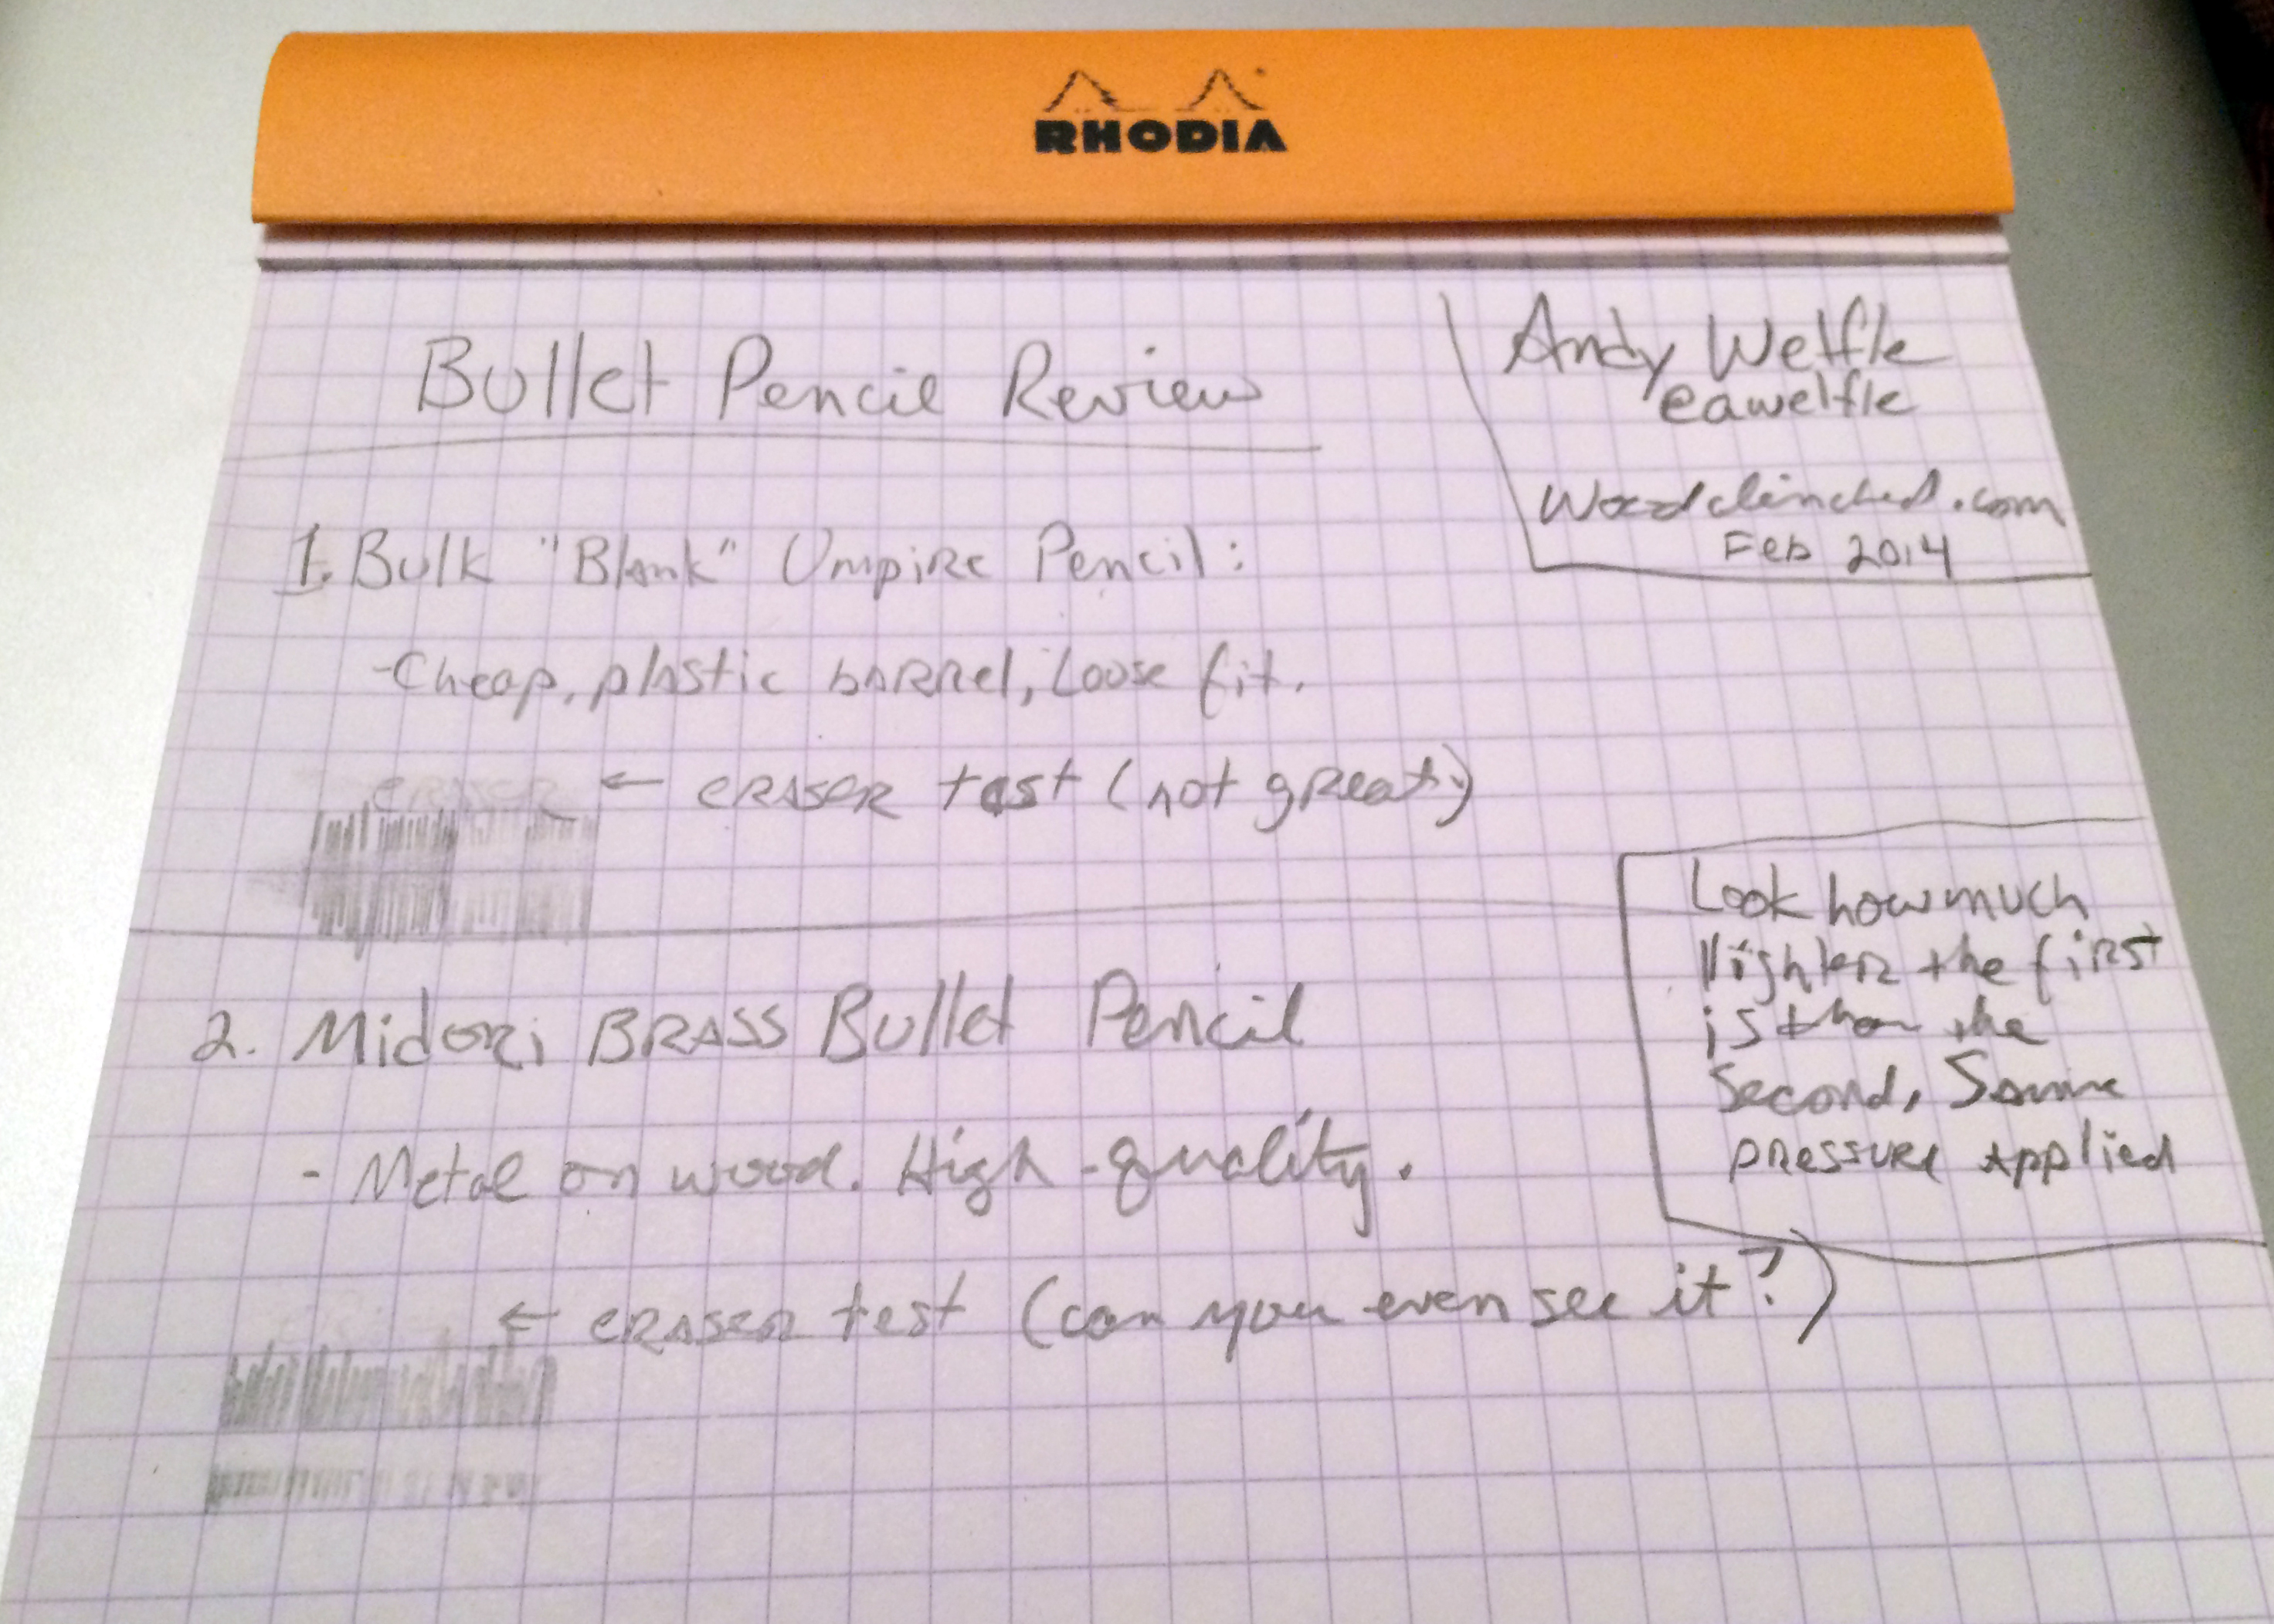 RHODIA
Bullet Pencil Review
Andy Welfle
@awelfle
Woodclinched.com
Feb 2014
1. Bulk "Blank" Umpire Pencil:
-Cheap, plastic barrel, Loose fit.
eraser
← eraser test (not great)
Look how much
lighter the first
is than the
Second, Same
pressure applied
2. Midori BRASS Bullet Pencil
- Metal on wood. High-quality.
← eraser test (can you even see it?)